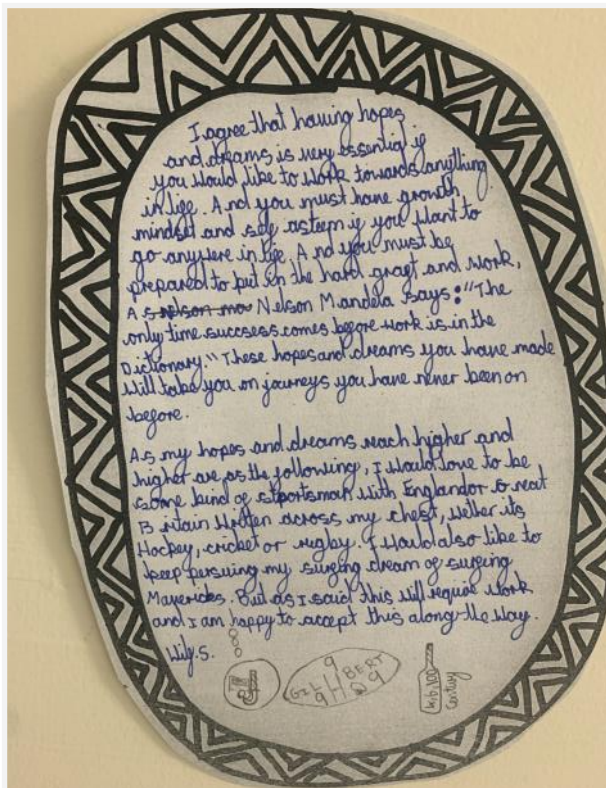 I agree that having hopes
and dreams is very essential if
you would like to work towards anything
in life. And you must have growth
mindset and self asteem if you want to
go anywhere in life. And you must be
prepared to put in the hard graft and work,
As nelson ma Nelson Mandela says: "The
only time succsess comes before work is in the
Dictionary." These hopes and dreams you have made
will take you on journeys you have never been on
before.
As my hopes and dreams reach higher and
higher are as the following, I would love to be
some kind of stportsman with England or
Britain written across my chest, wether its
Hockey, cricket or rugby. I would also like to
keep persuing my surfing dream of surfing
Mavericks. But as I said this will requie work
and I am happy to accept this along the way.
Wily.S.
GILBERT
9 9 9
Century